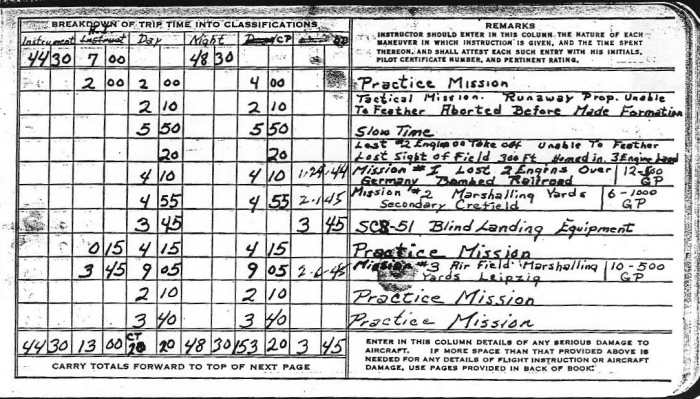 BREAKDOWN OF TRIP TIME INTO CLASSIFICATIONS
REMARKS
Instrument Day Night CP
INSTRUCTOR SHOULD ENTER IN THIS COLUMN THE NATURE OF EACH
MANEUVER IN WHICH INSTRUCTION IS GIVEN, AND THE TIME SPENT
THEREON, AND SHALL ATTEST EACH SUCH ENTRY WITH HIS INITIALS,
PILOT CERTIFICATE NUMBER, AND PERTINENT RATING.
44 30 7 00 48 30
2 00 2 00 4 00 Practice Mission
2 10 2 10 Tactical Mission. Runaway Prop. Unable
To Feather Aborted Before Made Formation
5 50 5 50 Slow Time
20 20 Lost #2 Engine on Take off Unable To Feather
Lost Sight of Field 300 Ft Homed in. 3 Engine Land
4 10 4 10 Mission #1 Lost 2 Engines Over 12-500
Germany Bombed Railroad GP
4 55 4 55 2-1-45 Mission #2 Marshalling Yards 6-1000
Secondary Crefield GP
3 45 3 45 SCS-51 Blind Landing Equipment
0 15 4 15 4 15 Practice Mission
3 45 9 05 9 05 2-6-45 Mission #3 Air Field Marshalling 10-500
Yards Leipzig GP
2 10 2 10 Practice Mission
3 40 3 40 Practice Mission
44 30 13 00 CT 20 20 48 30 153 20 3 45
CARRY TOTALS FORWARD TO TOP OF NEXT PAGE
ENTER IN THIS COLUMN DETAILS OF ANY SERIOUS DAMAGE TO
AIRCRAFT. IF MORE SPACE THAN THAT PROVIDED ABOVE IS
NEEDED FOR ANY DETAILS OF FLIGHT INSTRUCTION OR AIRCRAFT
DAMAGE, USE PAGES PROVIDED IN BACK OF BOOK.